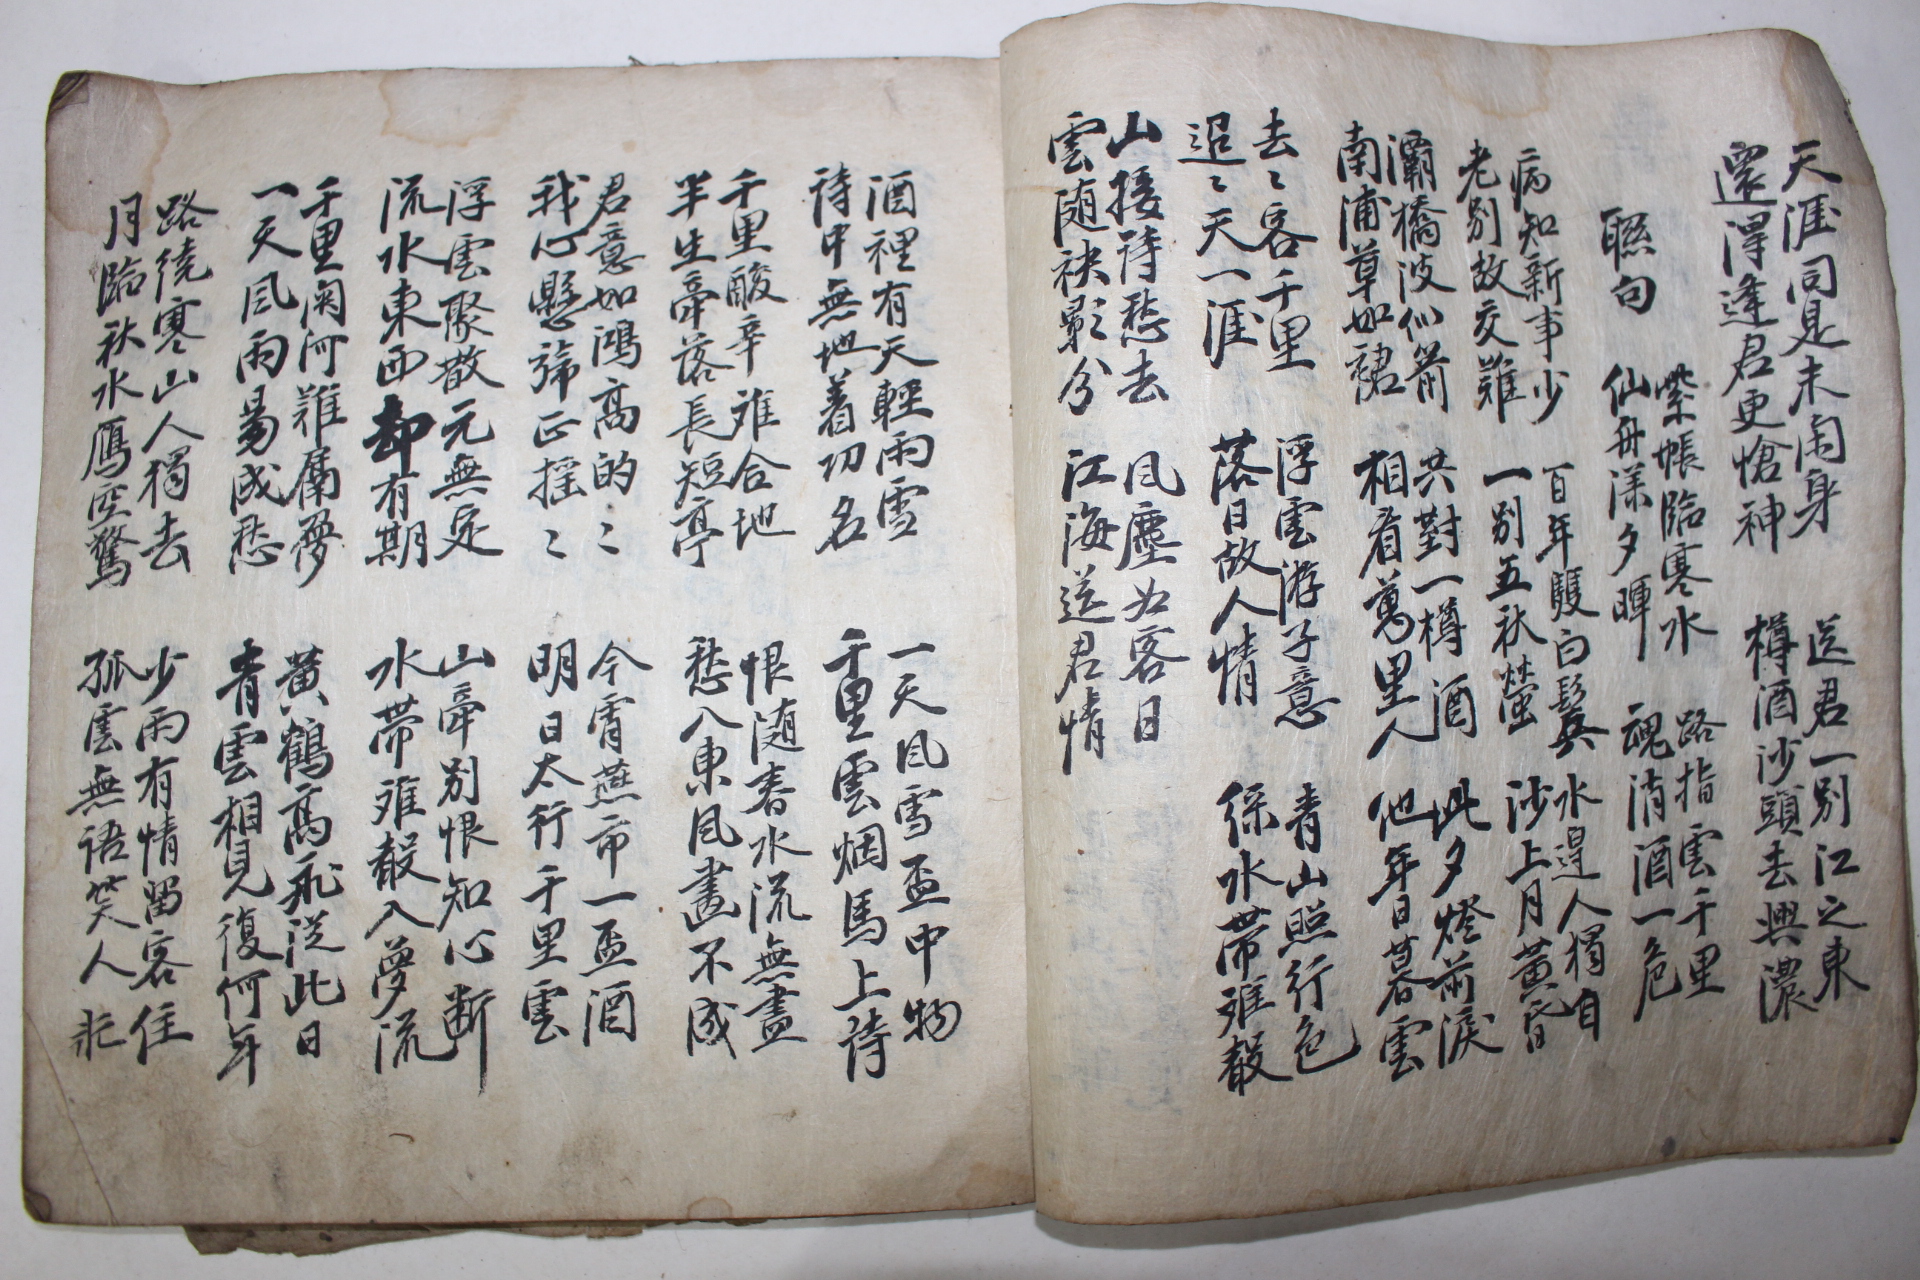 天涯同是未閑身
還得逢君更愴神
送君一別江之東
樽酒沙頭去興濃
聯句
紫帳臨寒水
仙舟漾夕暉
路指雲千里
魂消酒一危
病知新事少
老別故交難
百年雙白鬢
一別五秋螢
水遠人獨自
沙上月黃昏
灞橋波似箭
南浦草如裙
共對一樽酒
相看萬里人
此夕燈前淚
他年日暮雲
去〻客千里
迢〻天一涯
浮雲游子意
落日故人情
青山照行色
綠水帶難聲
山接詩愁去
雲随袂影分
風塵爲客日
江海送君情
酒裡有天輕雨雪
詩中無地着功名
一天風雪盃中物
千里雲烟馬上詩
千里酸辛难合地
半生牽落長短亭
恨随春水流無盡
愁入東風畫不成
君意如鴻高的〻
我心懸旆正摇〻
今宵燕市一盃酒
明日太行千里雲
浮雲聚散元無定
流水東西却有期
山牽別恨知心断
水帶难聲入夢流
千里関河難屬夢
一天風雨易成愁
黃鶴高飛從此日
青雲相見復何年
路繞寒山人獨去
月臨秋水鴈空驚
少雨有情留客住
孤雲無語笑人